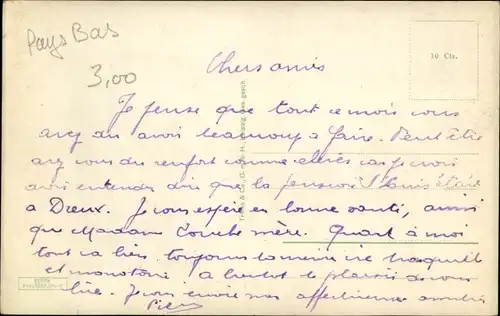 Pays Bas
3,00
10 Cts.
Chers amis
Je pense que tout ce mois vous
avez du avoir beaucoup à faire. Peut être
avez vous du renfort comme élèves car je crois
avoir entendu dire que la pension St Louis était
à Dreux. Je vous espère en bonne santé, ainsi
que Madame mère. Quant à moi
tout va bien, toujours la même vie tranquille
et monotone. A bientot le plaisir de vous
lire. Je vous envoie mes affectueuses amitiés